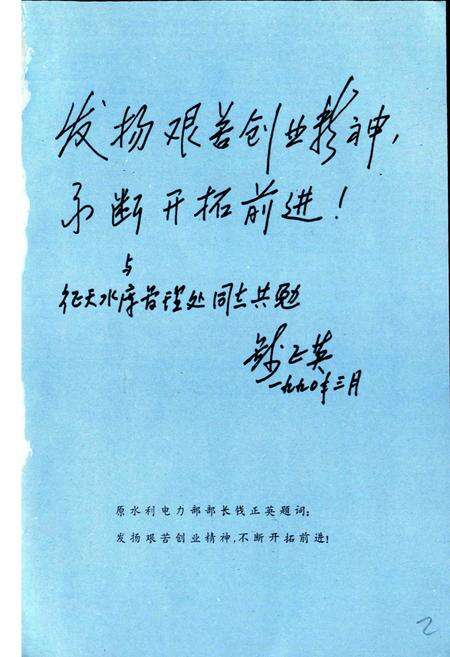 发扬艰苦创业精神，
不断开拓前进！
与
征天水库管理处同志共勉
钱正英
一九九〇年三月
原水利电力部部长钱正英题词：
发扬艰苦创业精神，不断开拓前进！
2